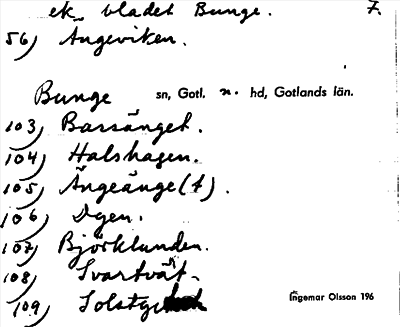 ek. bladet Bunge. 7.
56) Ängeviken.
Bunge sn, Gotl. n. hd, Gotlands län.
103) Barsänget.
104) Halshagen.
105) Ängeänge(t).
106) Dyen.
107) Björklunden.
108) Svartvät
109)
Ingemar Olsson 196